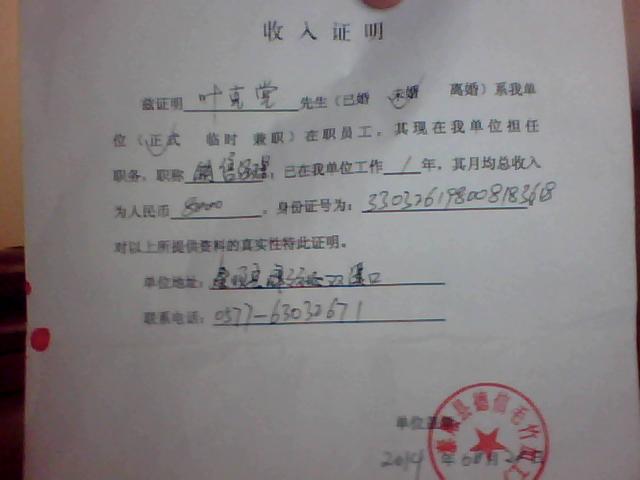 收入证明
兹证明 叶克堂 先生（已婚 未婚 离婚）系我单
位（正式 临时 兼职）在职员工。其现在我单位担任
职务，职称 销售经理，已在我单位工作 1 年，其月均总收入
为人民币 8000 。身份证号为：330326198008183618
对以上所提供资料的真实性特此证明。
单位地址：
联系电话：0577-63032671
单位盖章：
2014 年 月 日